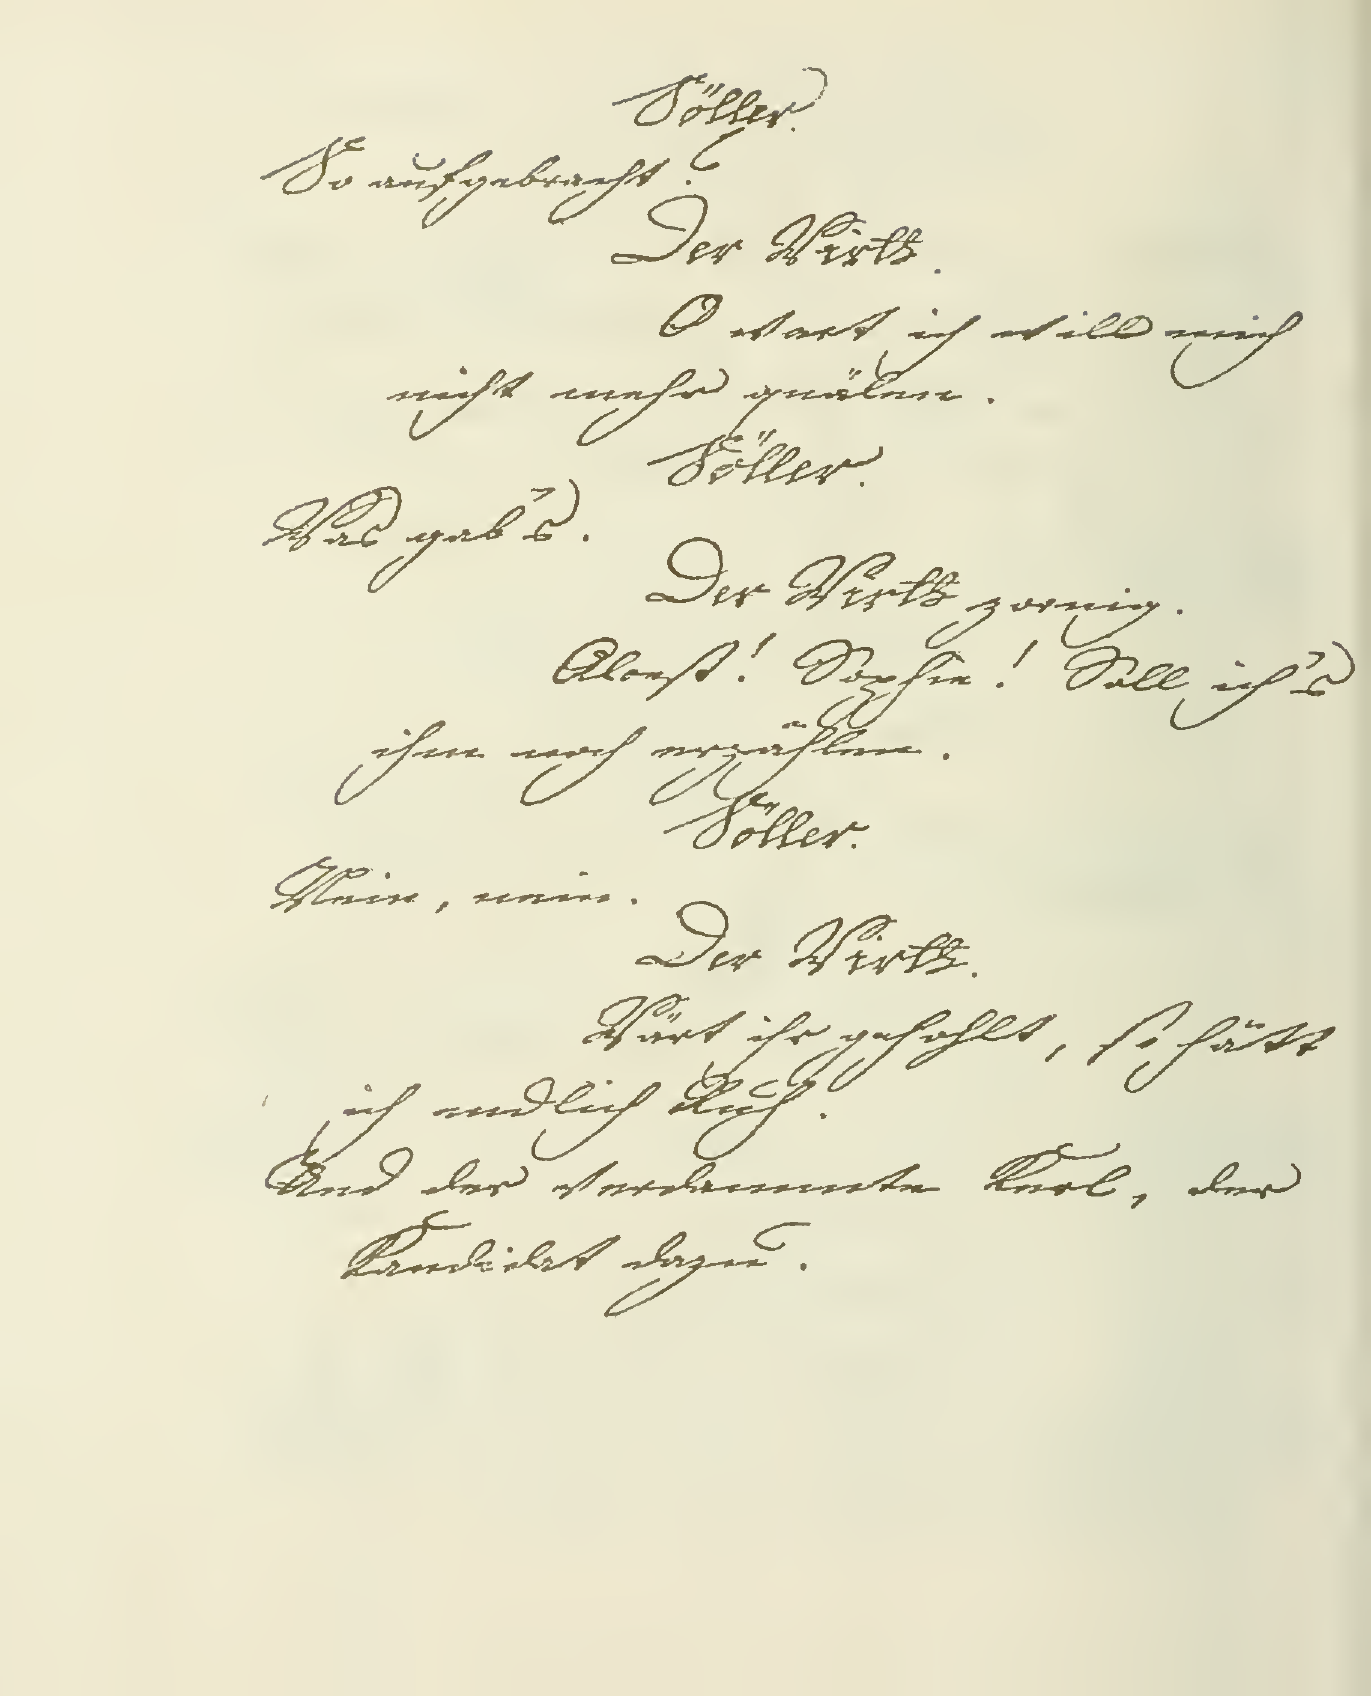 Söller.
So aufgebracht?
Der Wirth.
O wart ich will mich
nicht mehr quälen.
Söller.
Was gab's.
Der Wirth zornig.
Alcest! Sophie! Soll ich's
ihm noch erzählen.
Söller.
Nein, nein.
Der Wirth.
Wärt ihr gehohlt, so hätt
ich endlich Ruh.
Und der verdammte Kerl, der
Kandidat dazu.